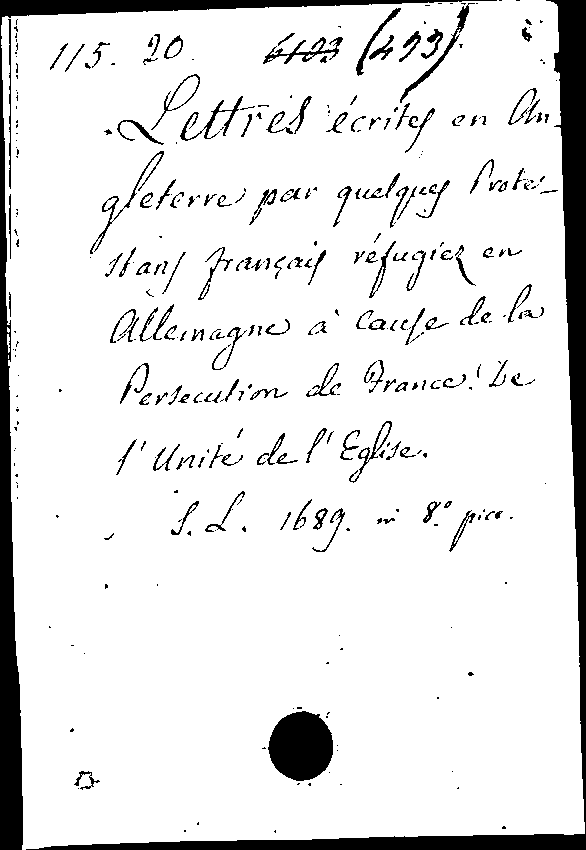 115. 20. 6103 (493)
Lettres écrites en An-
gleterre par quelques Prote-
stans français réfugiez en
Allemagne à cause de la
Persecution de France. De
l'Unité de l'Eglise.
S. L. 1689. in 8.º picc.